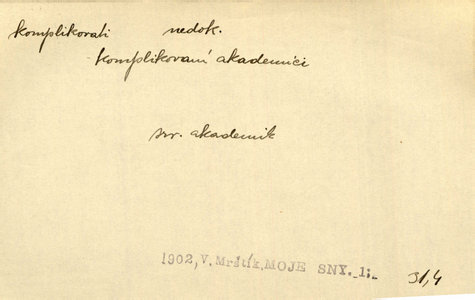 komplikovati nedok.
komplikovaní akademici
srv. akademik
1902, V. Mrštík, MOJE SNY. 1;
31,4